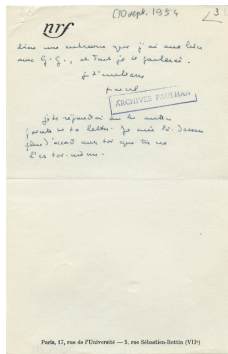 nrf
[10 sept. 1954
3
une entrevue que j'ai eue hier
avec G. G., et dont je te parlerai.
je t'embrasse
ARCHIVES PAULHAN
je te répondrai sur les autres
points de ta lettre. Je suis là-dessus
plus d'accord avec toi que tu ne
l'es toi-même.
Paris, 17, rue de l'Université — 5, rue Sébastien-Bottin (VIIᵉ)